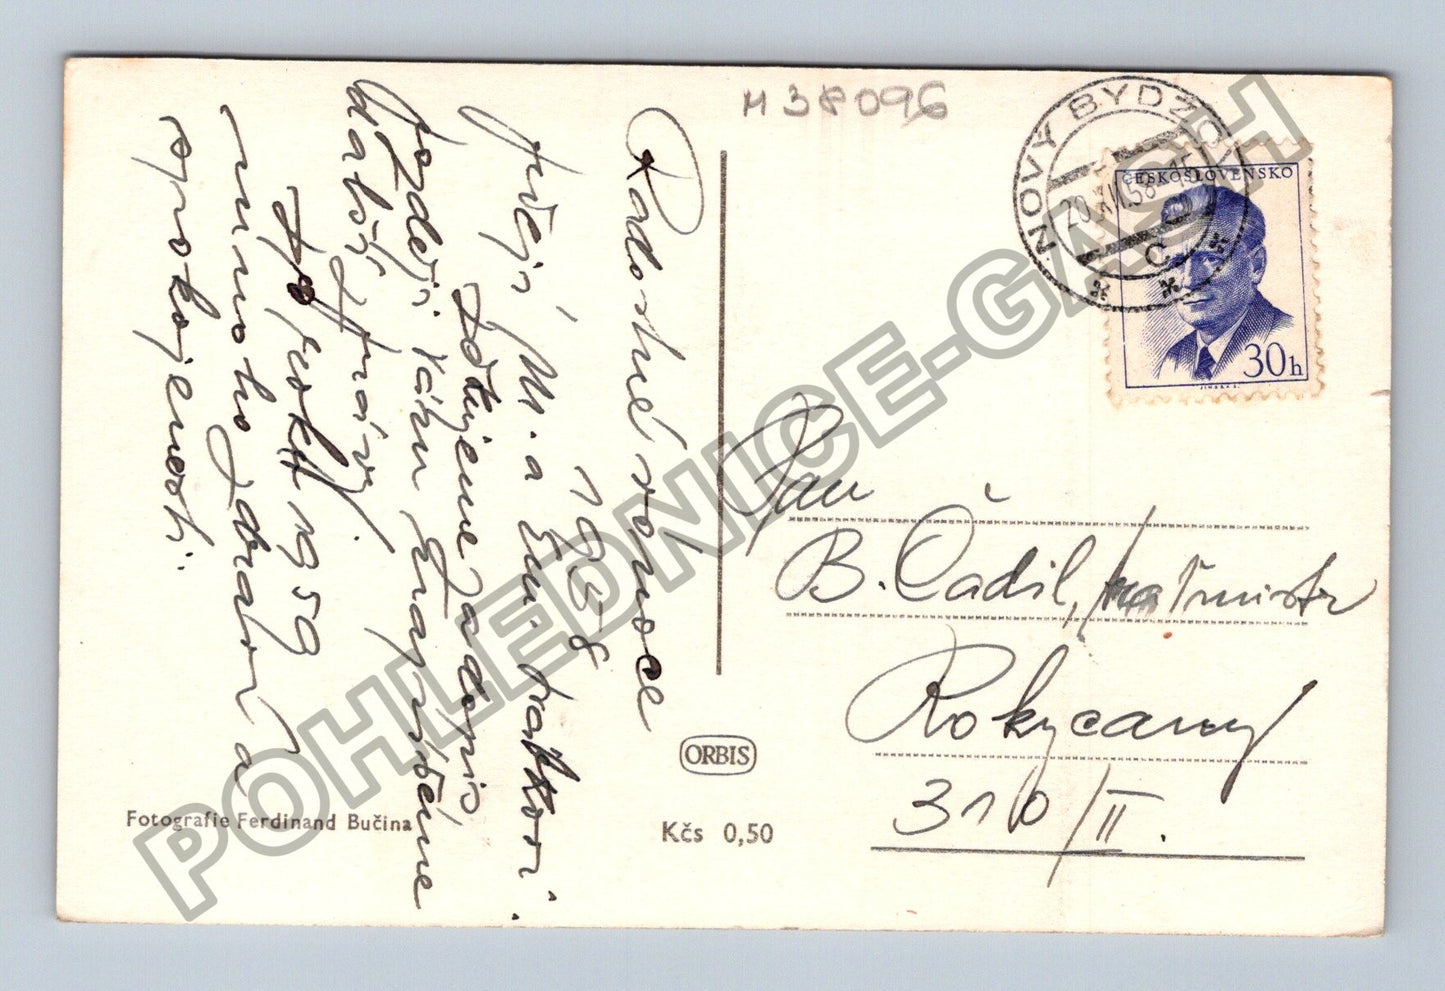 M 38096
NOVÝ BYDŽOV
20.XII.58-15
C
ČESKOSLOVENSKO
30h
Radostné vánoce
1958
přejí M. a
Děkujeme za dopis,
později Vám napíšeme
zprávy.
Do roku 1959
mnoho zdraví a
spokojenosti.
Pan
B. Čadil,
Rokycany
310/II.
ORBIS
Kčs 0,50
Fotografie Ferdinand Bučina
POHLEDNICE-GASH